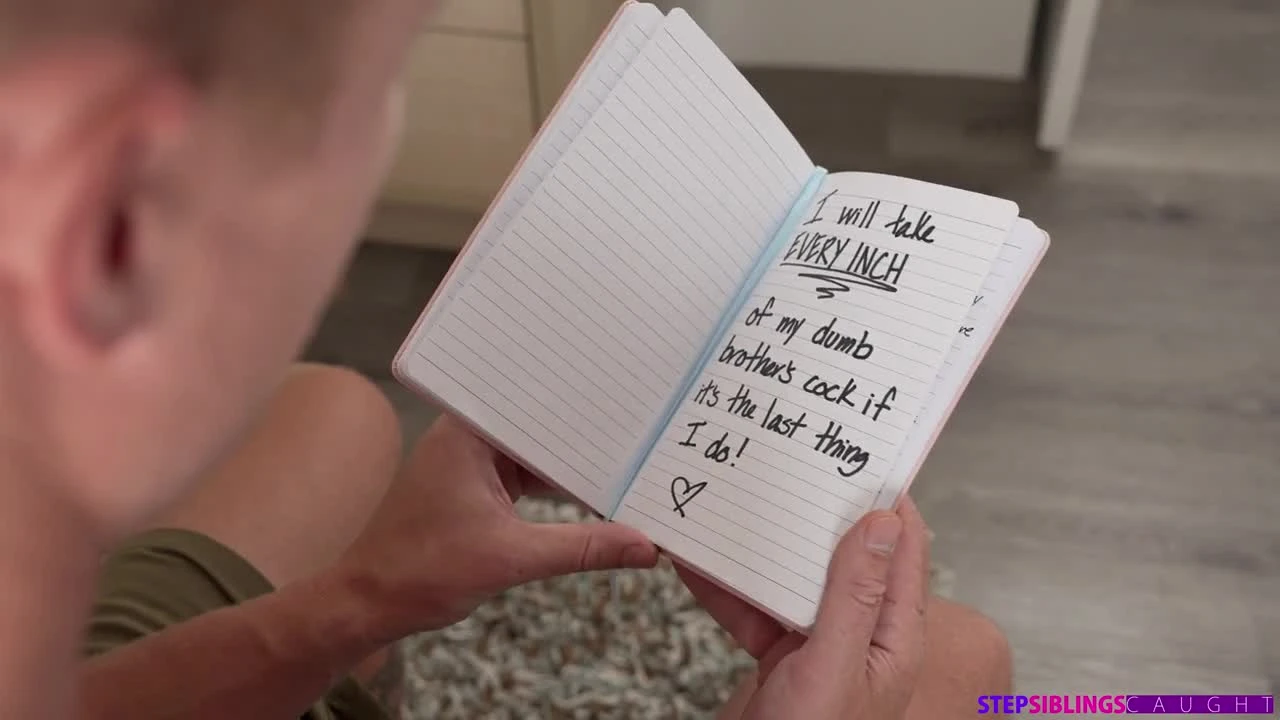 I will take
EVERY INCH
of my dumb
brother's cock if
it's the last thing
I do!
re
STEPSIBLINGSCAUGHT